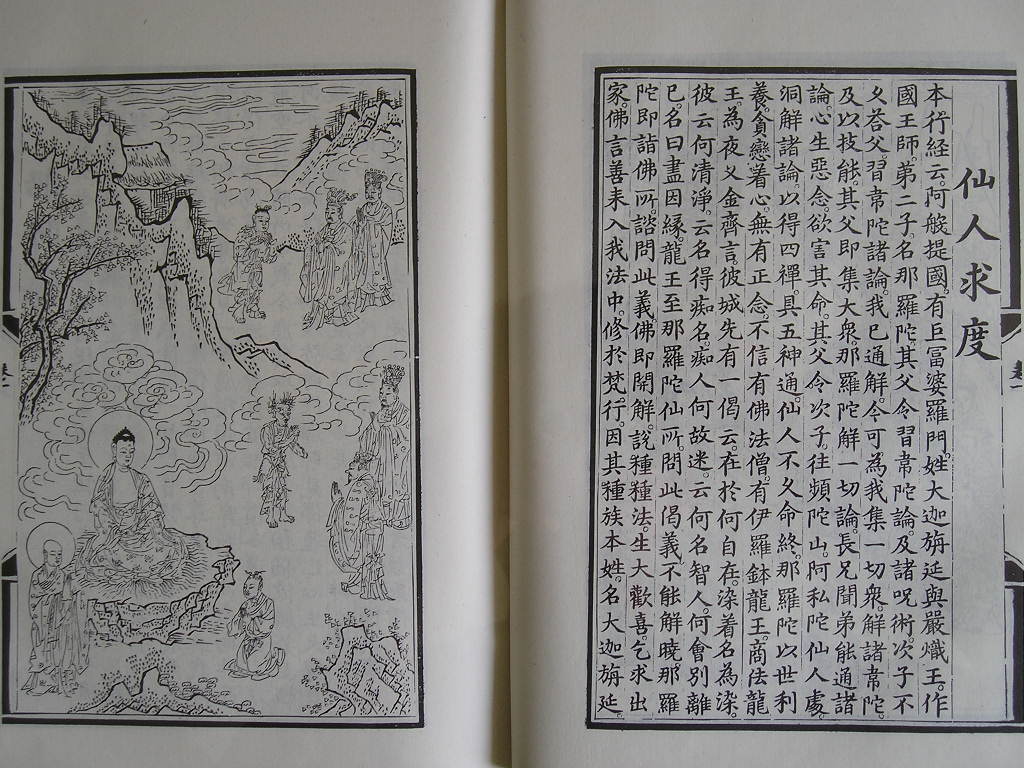 仙人求度
本行經云。阿般提國。有巨富婆羅門。姓大迦旃延。與嚴熾王。作
國王師。弟二子。名那羅陀。其父令習韋陀論。及諸呪術。次子不
久荅父。習韋陀諸論。我已通解。今可為我集一切衆。解諸韋陀。
及以技能。其父即集大衆。那羅陀解一切論。長兄聞弟能通諸
論。心生惡念。欲害其命。其父令次子。往頻陀山。阿私陀仙人處。
洞解諸論。以得四禪。具五神通。仙人不久命終。那羅陀以世利
養。貪戀著心。無有正念。不信有佛法僧。有伊羅鉢龍王。商佉龍
王。為夜叉金齊言。彼城先有一偈云。在於何自在。染着名為染。
彼云何清淨。云名得痴名。痴人何故迷。云何名智人。何會別離
已。名曰盡因緣。龍王至那羅陀仙所。問此偈義。不能解曉。那羅
陀即詣佛所。諮問此義。佛即開解。說種種法。生大歡喜。乞求出
家。佛言善来。入我法中。修於梵行。因其種族本姓。名大迦旃延。